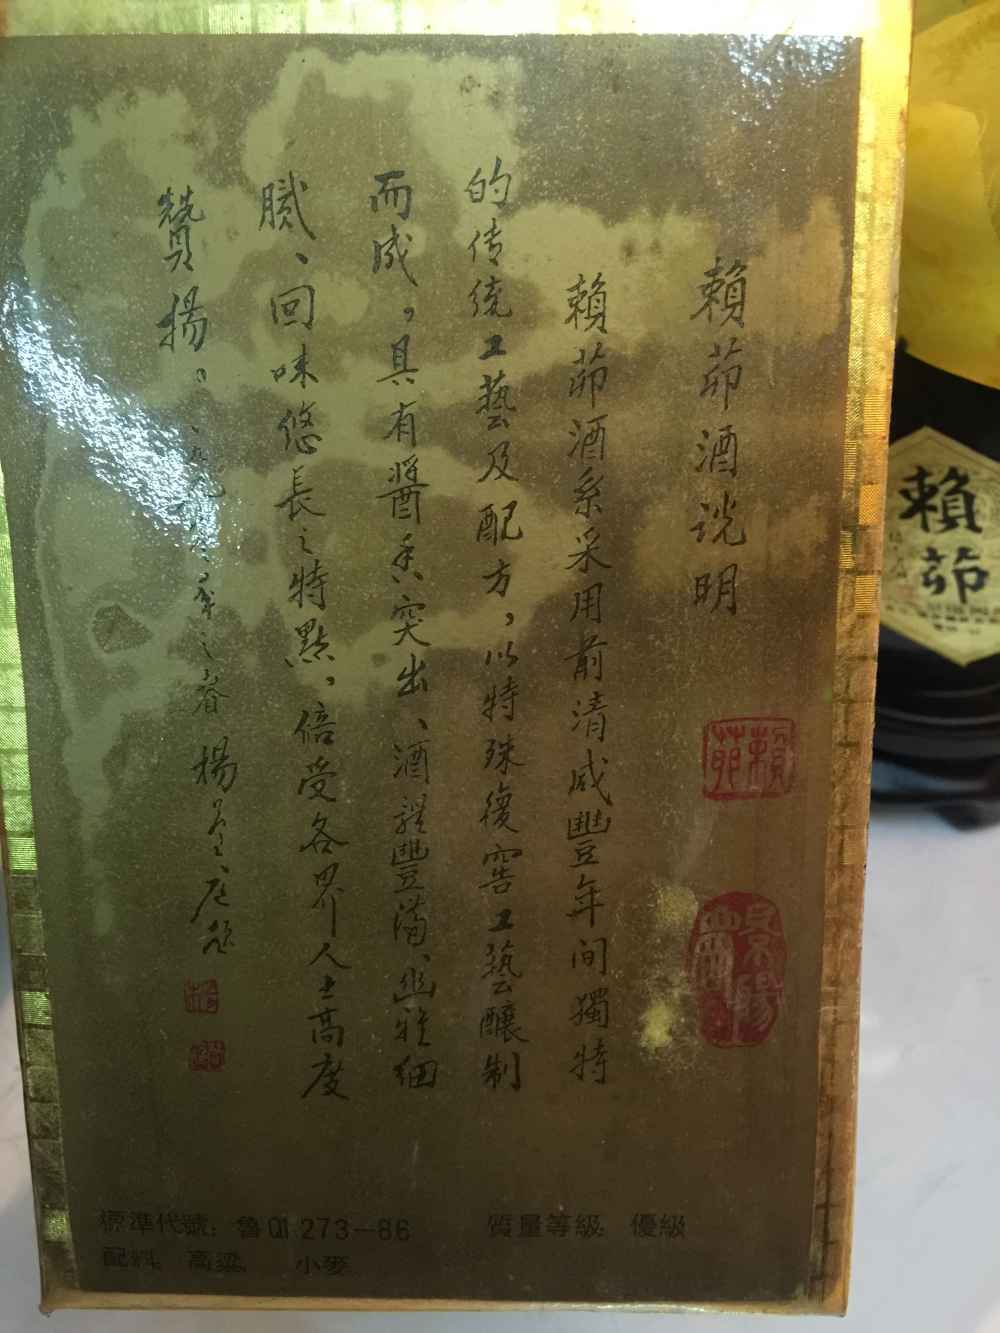 賴茆酒说明
賴茆酒系采用前清咸豐年间獨特
的传统工藝及配方，以特殊複窖工藝釀制
而成。具有醬香突出、酒體豐滿、幽雅细
腻、回味悠長之特點，倍受各界人士高度
赞揚。
年之春 楊
賴茆
標準代號：魯Q1 273—86 質量等級：優級
配料：高粱 小麥
賴
茆